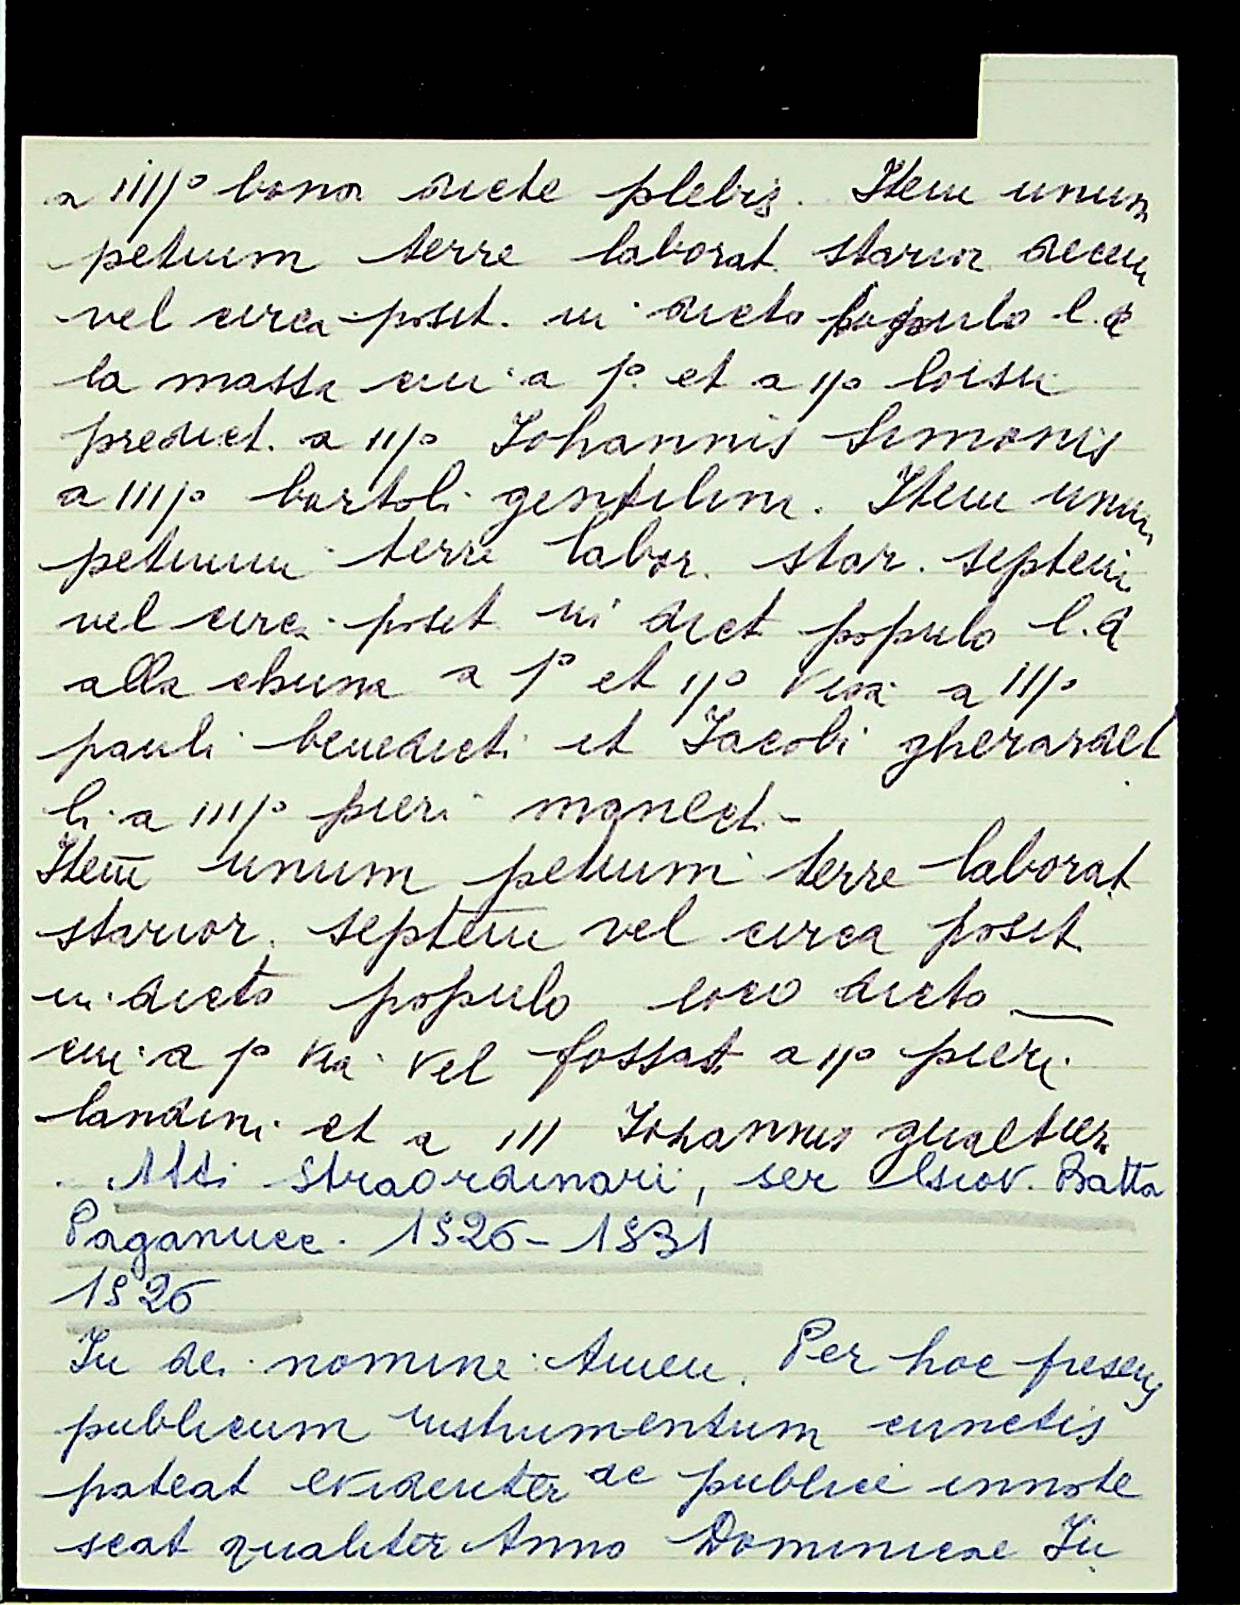 a iiijº bona dicte plebis. Item unum
petium terre laborat. starior decem
vel circa posit. in dicto populo l.d
la massa cui a pº et a ijº loisii
predict. a iijº Johannis Simonis
a iiijº bartoli gentilini. Item unum
petium terre labor. star. septem
vel circa posit in dict populo l.d
alla chiusa a pº et ijº via a iijº
pauli benedicti et Jacobi gherardel
li a iiijº pieri
Item unum petium terre laborat
starior. septem vel circa posit
in dicto populo loco dicto ___
cui a pº via vel fossat a ijº pieri
landini et a iij Johannis gualtier
Atti Straordinari, ser Giov. Batta
Paganucc. 1526-1531
1526
In dei nomine Amen. Per hoc presens
publicum instrumentum cunctis
pateat evidenter ac publice innote
scat qualiter Anno Dominicae In